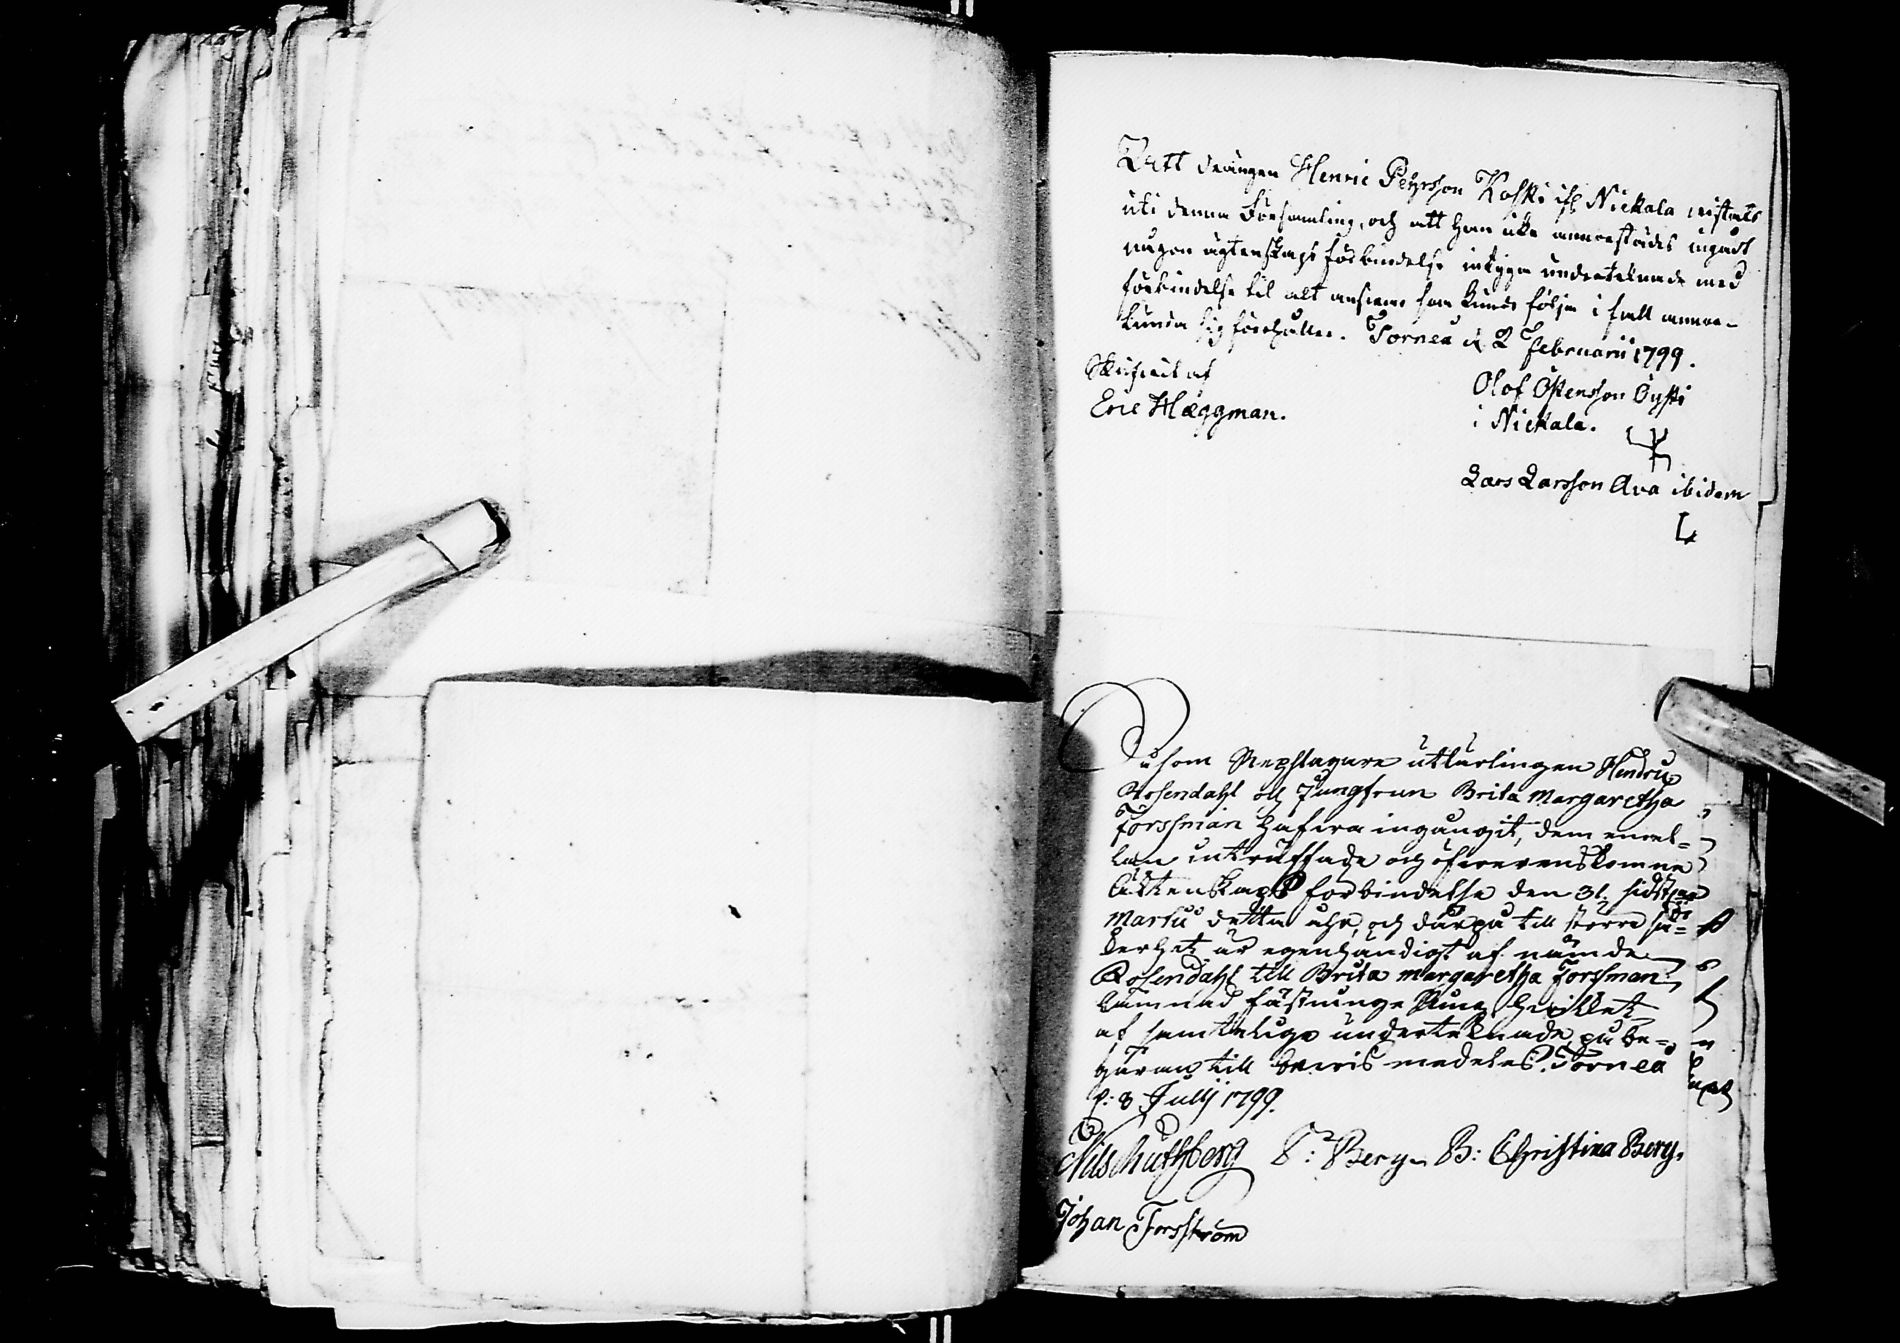 Att drängen Henric Pehrsson Koski ifr Nickala vistats
uti denna Församling, och att han icke annorstädes ingådt
någon ägtenskaps förbindelse intyga undertecknade med
förbindelse til alt ansvar som kunde följa i fall annor-
lunda sig förehåller. Torneå d. 2 Februarii 1799.
Skrifvit af
Eric Häggman.
Olof Östensson Öyski
i Nickala.
Lars Larsson Ava ibidem
Såsom Repslagare utlärlingen Hendric
Rosendahl och Jungfrun Brita Margaretha
Forssman hafva ingångit, dem emel-
lan intrüffade och öfverenskomne
Äktenskaps forbindelse den 31 sidst
Martii detta åhr, och därpå till större sä-
kerhet är egenhändigt af nämde
Rosendahl till Brita Margaretha Forssman
lämnad fästninge Ring hvilket
af samtelige undertecknade på be-
gäran till bevis medeles. Torneå
d: 8 Julij 1799.
Nils Huthberg P: Berg B: Christina Berg.
Johan Forsström